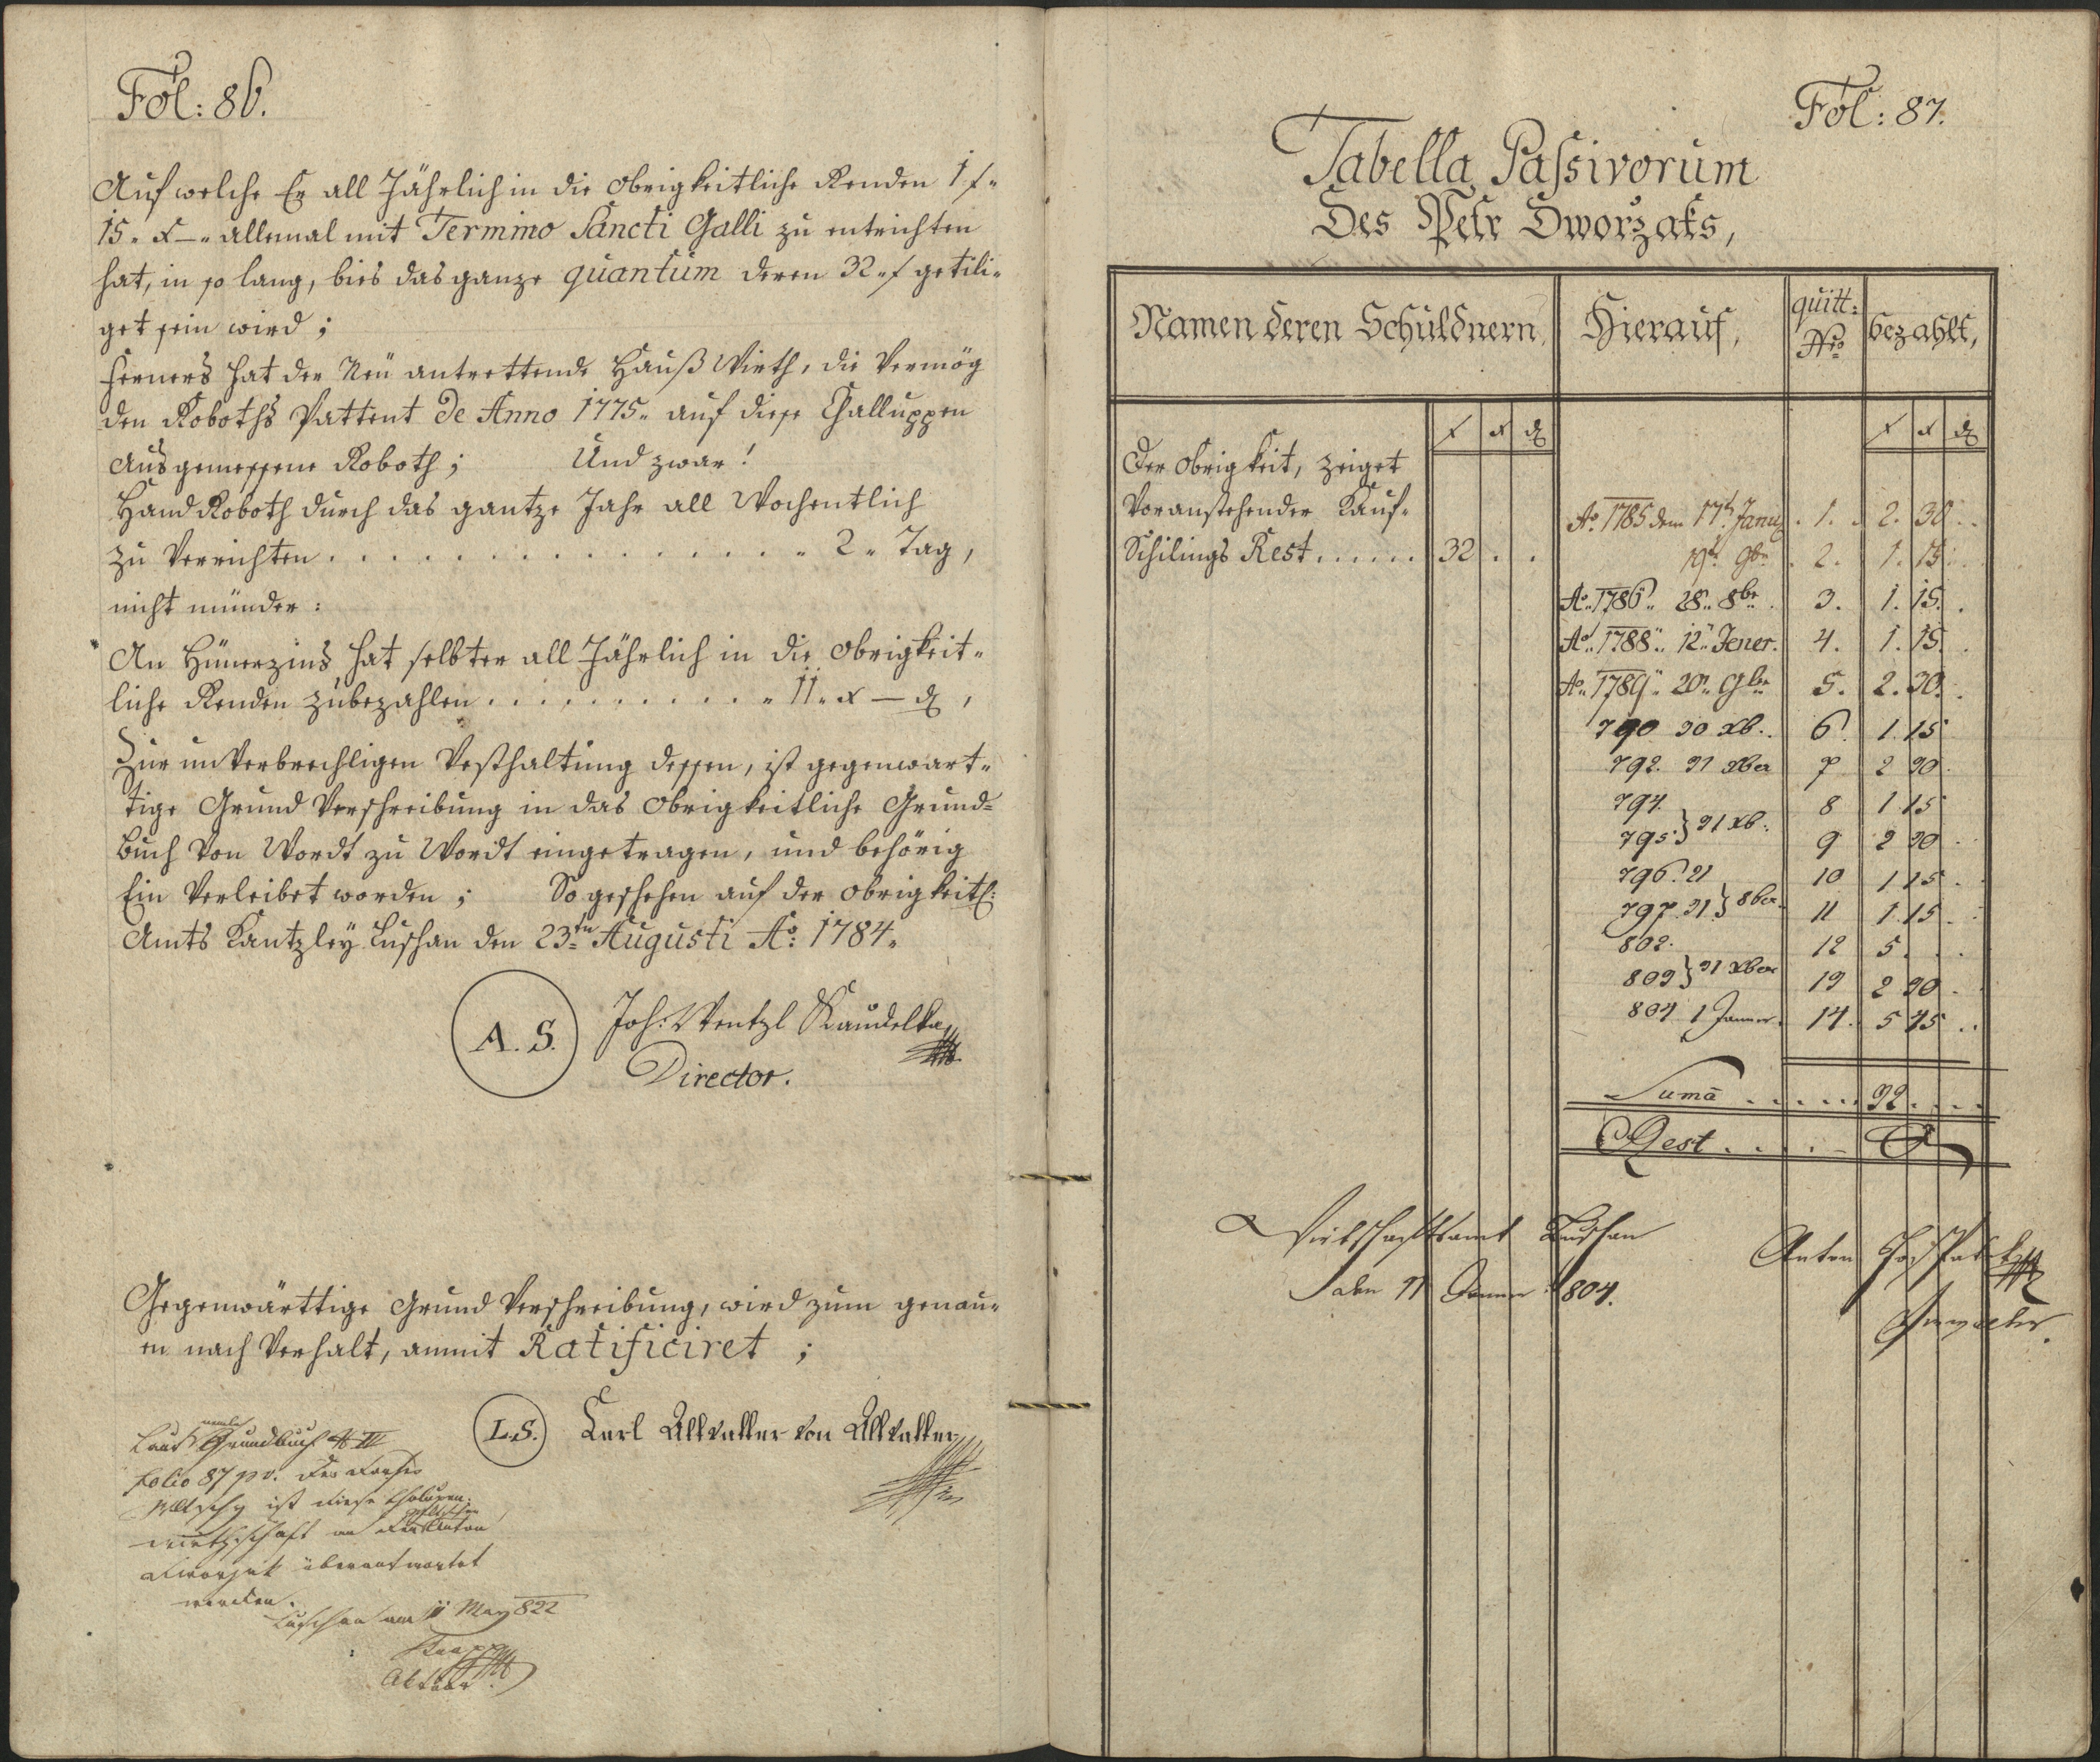 Fol: 86.
Auf welche Er all Jährlich in die obrigkeitliche Renden 1 f "
15 " x — " allemal mit Termino Sancti Galli zu entrichten
hat, in so lang, bies das ganze quantum deren 32 " f getili-
get sein wird ;
Ferners hat der Neu antrettende Hauß Wirth, die Vermög
den Roboths Pattent de Anno 1775 " auf diese Challuppen
Ausgemessene Roboth ; Und zwar !
Hand Roboth durch das gantze Jahr all Wochentlich
zu Verrichten . . . . . . . . . . . . . . . " 2 " Tag ,
nicht münder :
An Hünerzins hat selbter all Jährlich in die obrigkeit-
liche Renden zubezahlen . . . . . . . . . . . " 11 " x — d ,
Zur un Verbrechligen Vesthaltung dessen, ist gegenwart-
tige Grund Verschreibung in das obrigkeitliche Grund-
Buch Von Wordt zu Wordt eingetragen, und behörig
Ein Verleibet worden ; So geschehen auf der obrigkeitl:
Amts Kantzley Luschan den 23tn Augusti Ao: 1784 "
A. S. Joh: Wentzl Kaudelka
Director.
Gegenwärttige Grund Verschreibung, wird zum genau-
en nach Verhalt, anmit Ratificiret ;
L.S. Carl Allvatter von Allvatter
Laut Grundbuch IV
Folio 87 pv. des
ist diese Chalupen
wirthschaft an Anton
Dworzak überantwortet
worden.
Luschan am 11 May 822
Knapp
Aktuar
Fol: 87.
Tabella Passivorum
Des Petr Dworzaks,
Namen deren Schuldnern, Hierauf, quitt: Nro bezahlt,
f x d f x d
Der obrigkeit, zeiget
Voranstehender Kauf-
Schilings Rest . . . . . . 32 . .
Ao. 1785 dem 17t Janu . 1. . 2. 30 . .
19t 9br . 2. 1. 15 . .
Ao. 1786 " 28 " 8br . 3. 1. 15. .
Ao. 1788 " 12 " Jener. 4. 1. 15. .
Ao. 1789 " 20 " 9br 5. 2. 30. .
790 30 xb. 6. 1. 15
792. 31 xber 7 2 30.
794. 8 1 15
795. } 31 xb. 9 2 30 .
796. 21 10 1 15 .
797. 31. } 8ber. 11 1. 15 .
802. 12 5 . . .
803 } 31 xber 13 2 30 .
804 1 Janner. 14. 5 45 . .
Suma . . . . . . 32 . . . .
Rest . . . . —
Wirtschaftsamt Luschan
den 11 Jenner 804.
Anton
Verwalter.